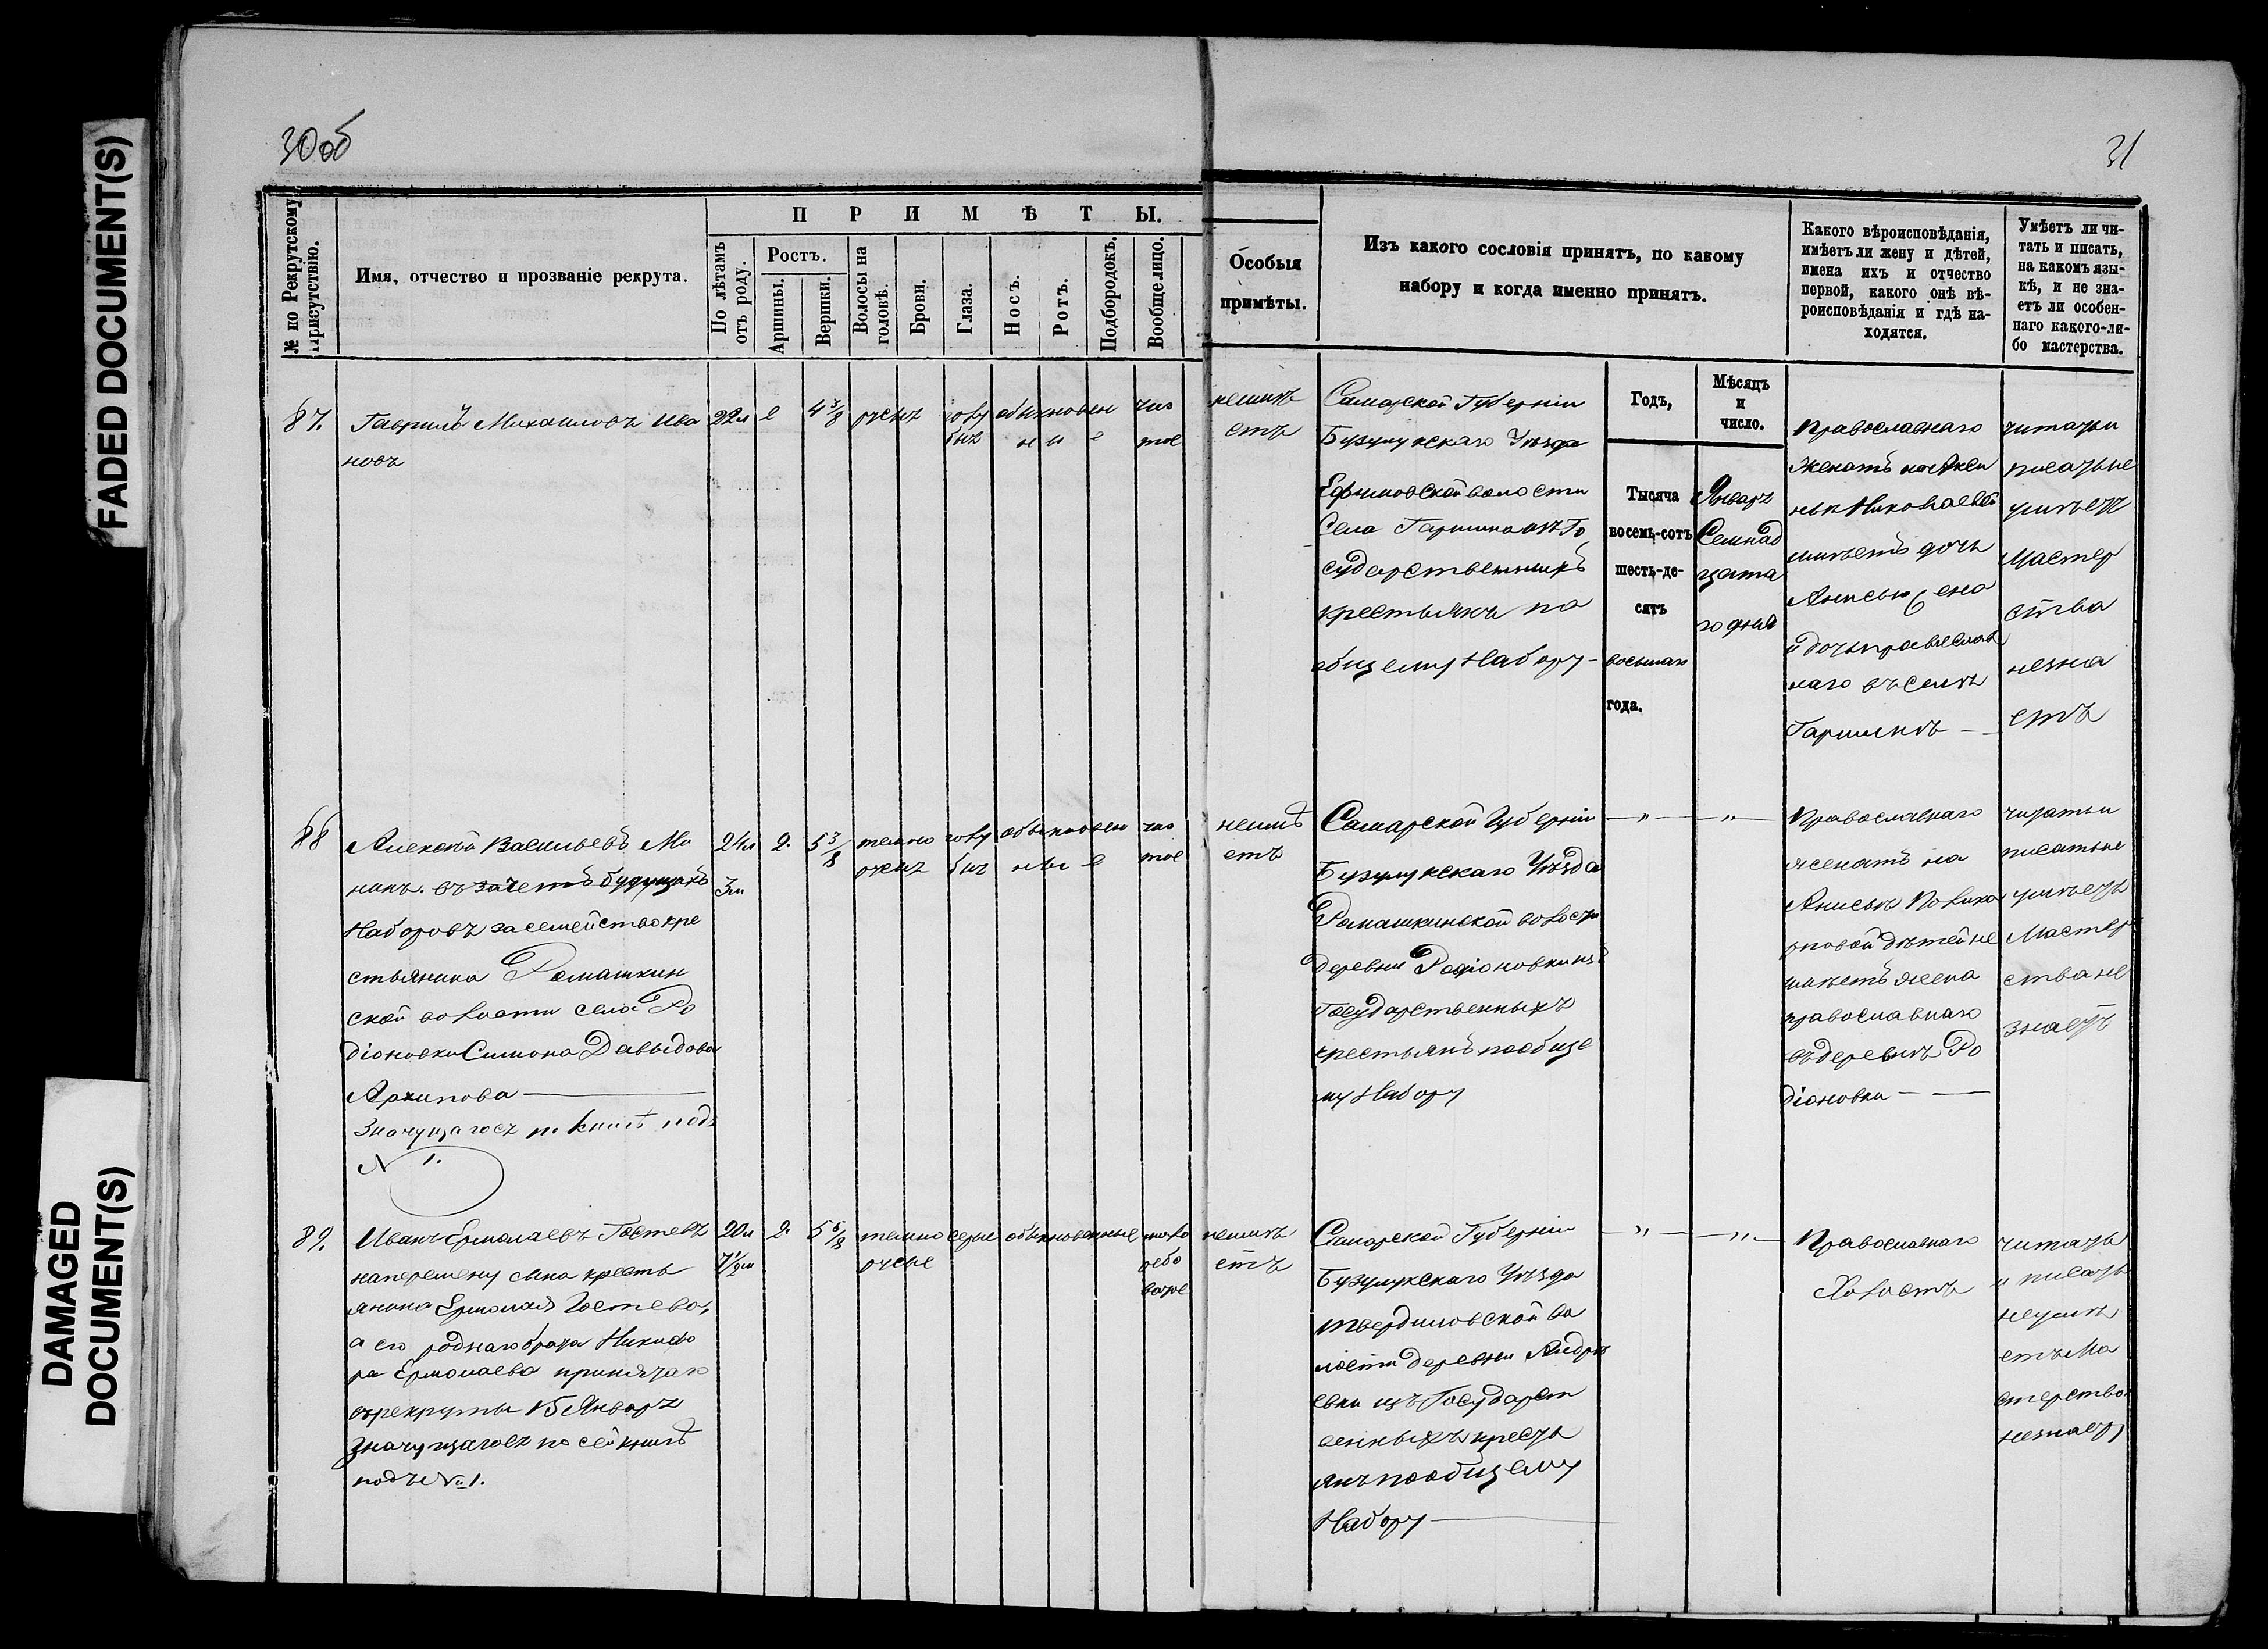 FADED DOCUMENT(S)
DAMAGED
DOCUMENT(S)
30 об
31
№ по Рекрутскому
присутствію.
Имя, отчество и прозваніе рекрута.
ПРИМѢТЫ.
По лѣтамъ
отъ роду.
Ростъ.
Аршины.
Вершки.
Волосы на
головѣ.
Брови.
Глаза.
Носъ.
Ротъ.
Подбородокъ.
Вообще лицо.
Особыя
примѣты.
Изъ какого сословія принятъ, по какому
набору и когда именно принятъ.
Какого вѣроисповѣданія,
имѣетъ ли жену и дѣтей,
имена ихъ и отчество
первой, какого онѣ вѣ-
роисповѣданія и гдѣ на-
ходятся.
Умѣетъ ли чи-
тать и писать,
на какомъ язы-
кѣ, и не зна-
етъ ли особен-
наго какого-ли-
бо мастерства.
Годъ,
Мѣсяцъ
и
число.
87.
Гаврилъ Михаиловъ Ива
новъ
22 л
2
4 3/8
русы
голу
бых
обыкновен
ны е
чис
тое
неимѣ
етъ
Самарской Губерніи
Бузулукскаго Уѣзда
Ефимовской волости
Села Гаршина изъ Го
сударственныхъ
крестьянъ по
общему Набору -
Тысяча
восемь-сотъ
шесть-де-
сятъ
восьмаго
года.
Январъ
Семнад
цата
го дня
Православнаго
Женатъ на
Николаевой
имѣетъ дочь
Анисью, она
и дочь православ
наго въ селѣ
Гаршинѣ -
читать и
писать не
умѣетъ
Мастер
ства
незна
етъ
88
Алексѣй Васильевъ Мо
нинъ. въ зачетъ будущихъ
Наборовъ за семейство кре
стьянина Ромашкин
ской волости села Ро
діоновки Симона Давыдова
Архипова
Значущагося по книгѣ подъ
№ 1.
24 л
3 м
2.
5 3/8
темно
русых
голу
бых
обыкновен
ны е
чис
тое
неимѣ
етъ
Самарской Губерніи
Бузулукскаго Уѣзда
Ромашкинской волости
деревни Родіоновки изъ
Государственныхъ
крестьянъ по обще
му Набору
— „ — „ —
Православнаго
женатъ на
Анисьѣ Полика
рповой дѣтей не
имѣетъ жена
православнаго
въ деревнѣ Ро
діоновки
читать и
писать не
умѣетъ
Мастер
ства не
знаетъ
89.
Иванъ Ермолаевъ Гостевъ
на перемену сына кресть
янина Ермолая Гостева,
а его роднаго брата Никифо
ра Ермолаева принятаго
въ рекруты 15 Январъ
Значущагося по сей книгѣ
подъ № 1.
20 л
7 1/2 м
2.
5 6/8
темно
русые
серые
обыкновенные
неимѣ
етъ
Самарской Губерніи
Бузулукскаго Уѣзда
твердиловской во
лости деревни Андрѣ
евки изъ Государст
венныхъ кресть
янъ по общему
Набору
— „ — „ —
Православнаго
Холостъ
читать
и писать
не умѣ
етъ Ма
стерства
не знаетъ